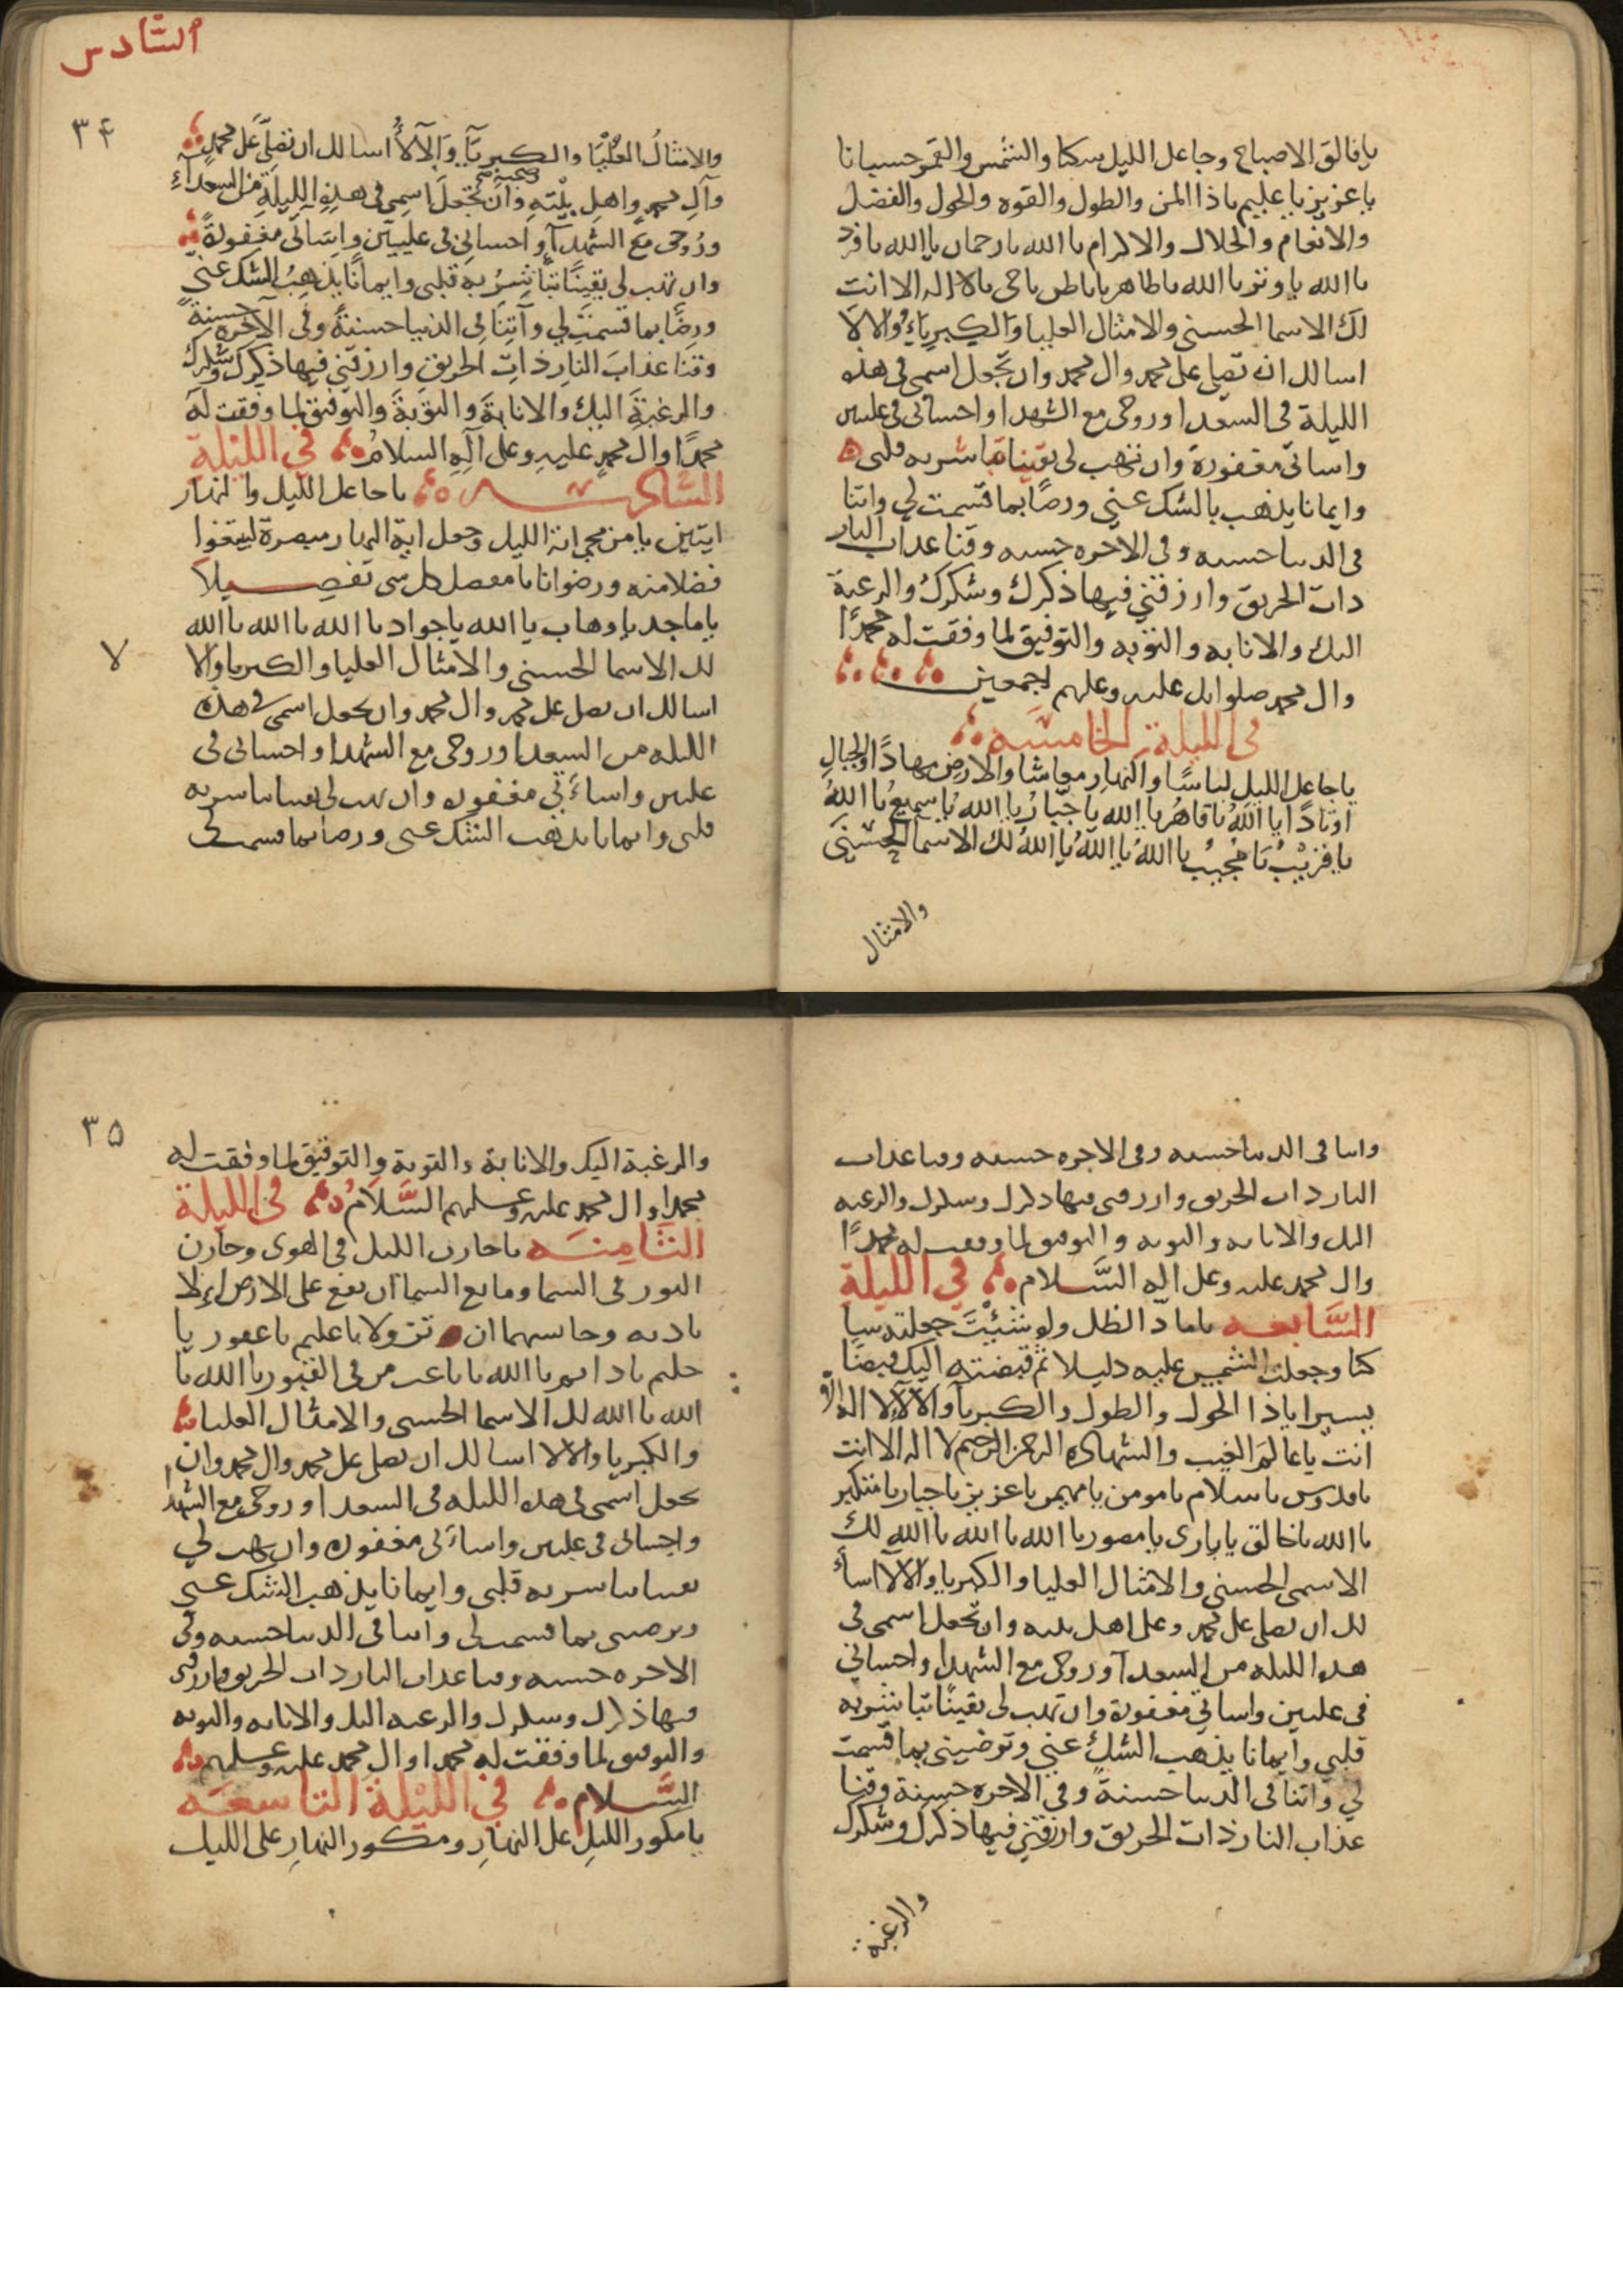 يا فالق الاصباح وجاعل الليل سكنا والشمس والقمر حسبانا
يا عزيز يا عليم يا ذا المن والطول والقوه والحول والفضل
والانعام والجلال والاكرام يا الله يا رحمان يا الله يا فرد
يا الله يا وتر يا الله يا ظاهر يا باطن يا حي يا لا اله الا انت
لك الاسما الحسنى والامثال العليا والكبرياء والالا
اسالك ان تصلي على محمد وال محمد وان تجعل اسمي في هذه
الليلة في السعدا وروحي مع الشهدا واحساني في عليين
واساتي مغفورة وان تهب لي يقينا تباشر به قلبي
وايمانا يذهب بالشك عني ورضا بما قسمت لي واتنا
في الدنيا حسنه وفي الاخره حسنه وقنا عذاب النار
ذات الحريق وارزقني فيها ذكرك وشكرك والرغبة
اليك والانابه والتوبه والتوفيق لما وفقت له محمدًا
وال محمد صلوا الله عليه وعليهم اجمعين
في الليلة الخامسه
يا جاعل الليل لباسًا والنهار معاشا والارض مهادًا والجبال
اوتادًا يا الله يا قاهر يا الله يا جبار يا الله يا سميع يا الله
يا قريب يا مجيب يا الله يا الله يا الله لك الاسما الحسنى
والامثال
السادس
٣۴
والامثال العليا والكبريآ والآلآ اسالك ان تصلي على محمد
وآل محمد واهل بيته وان تجعل اسمي في هذه الليلة من السعدآء
وروحي مع الشهدآ واحساني في عليين واساتي مغفورةً
وان تهب لي يقينًا تباشر به قلبي وايمانًا يذهب الشك عني
ورضًا بما قسمت لي وآتنا في الدنيا حسنةً وفي الآخره حسنةً
وقنا عذاب النار ذات الحريق وارزقني فيها ذكرك وشكرك
والرغبة اليك والانابة والتوبة والتوفيق لما وفقت له
محمدًا وال محمد عليه وعلى آله السلام في الليلة
السادسه يا جاعل الليل والنهار
ايتين يا من محى اية الليل وجعل اية النهار مبصرة ليبتغوا
فضلا منه ورضوانا يا مفصل كل شي تفصيلا
يا ماجد يا وهاب يا الله يا جواد يا الله يا الله يا الله
لك الاسما الحسنى والامثال العليا والكبريا والالا
لا
اسالك ان تصلي على محمد وال محمد وان تجعل اسمي في هذه
الليله من السعدا وروحي مع الشهدا واحساني في
عليين واساءتي مغفوره وان تهب لي يقينا تباشر به
قلبي وايمانا يذهب الشك عني ورضا بما قسمت لي
واتنا في الدنيا حسنه وفي الاخره حسنه وقنا عذاب
النار ذات الحريق وارزقني فيها ذكرك وشكرك والرغبه
اليك والانابه والتوبه والتوفيق لما وفقت له محمدًا
وال محمد عليه وعلى اله السَّلام في الليلة
السَّابعه يا مادّ الظل ولو شئت جعلته سا
كنا وجعلت الشمس عليه دليلا ثم قبضته اليك قبضًا
يسيرا يا ذا الحول والطول والكبريآ والآلآ لا اله الا
انت يا عالم الغيب والشهاده الرحمن الرحيم لا اله الا انت
يا قدوس يا سلام يا مومن يا مهيمن يا عزيز يا جبار يا متكبر
يا الله يا خالق يا باري يا مصور يا الله يا الله يا الله لك
الاسمى الحسنى والامثال العليا والكبريا والالآ اسأ
لك ان تصلي على محمد وعلى اهل بيته وان تجعل اسمي في
هذه الليله من السعدآ وروحي مع الشهدا واحساني
في عليين واساتي مغفورة وان تهب لي يقينًا تباشر به
قلبي وايمانا يذهب الشك عني وترضيني بما قسمت
لي واتنا في الدنيا حسنةً وفي الاخره حسنة وقنا
عذاب النار ذات الحريق وارزقني فيها ذكرك وشكرك
والرغبة
٣۵
والرغبة اليك والانابة والتوبة والتوفيق لما وفقت له
محمدا وال محمد عليه وعليهم السَّلام في الليلة
الثامنه يا خازن الليل في الهوى وخازن
النور في السما ومانع السما ان تقع على الارض الا
باذنه وحابسهما ان تزولا يا عليم يا غفور يا
حليم يا دايم يا الله يا باعث من في القبور يا الله يا
الله يا الله لك الاسما الحسنى والامثال العليا
والكبريا والالا اسالك ان تصلي على محمد وال محمد وان
تجعل اسمي في هذه الليله في السعدا وروحي مع الشهدا
واحساني في عليين واساءتي مغفوره وان تهب لي
يقينا تباشر به قلبي وايمانا يذهب الشك عني
وترضيني بما قسمت لي واتنا في الدنيا حسنه وفي
الاخره حسنه وقنا عذاب النار ذات الحريق وارزقني
فيها ذكرك وشكرك والرغبه اليك والانابه والتوبه
والتوفيق لما وفقت له محمدا وال محمد عليه وعليهم
السَّلام في الليلة التاسعه
يا مكور الليل على النهار ومكور النهار على الليل